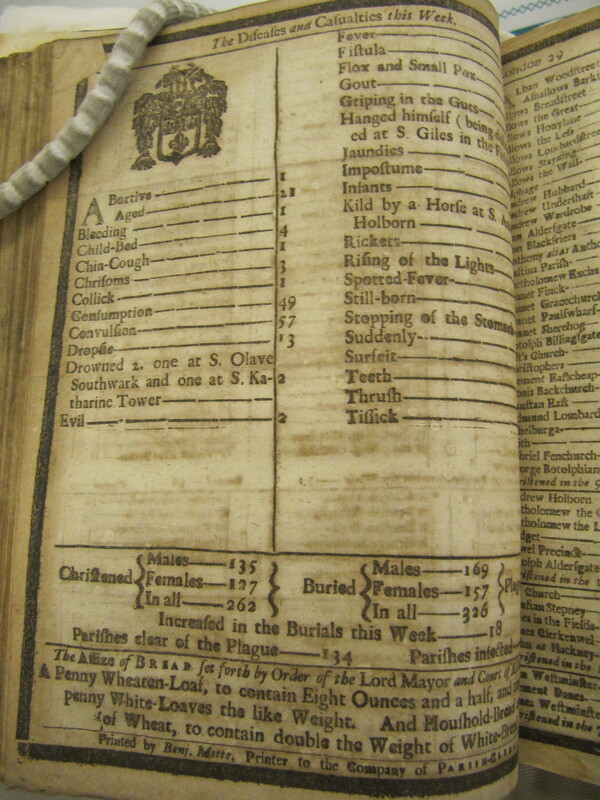 The Diseases and Casualties this Week.
ABortive
Aged
Bleeding
Child-Bed
Chin-Cough
Chrisoms
Collick
Consumption
Convulsion
Dropsie
Drowned 2. one at S. Olave
Southwark and one at S. Ka-
tharine Tower
Evil
1
21
1
4
1
3
1
49
57
13
2
2
Fever
Fistula
Flox and Small Pox
Gout
Griping in the Guts
Hanged himself (being
ed at S. Giles in the
Jaundies
Impostume
Infants
Kild by a Horse at S.
Holborn
Rickets
Rising of the Lights
Spotted-Fever
Still-born
Stopping of the Stomach
Suddenly
Surfeit
Teeth
Thrush
Tissick
Christened
Males 135
Females 127
In all 262
Buried
Males 169
Females 157
In all 326
Increased in the Burials this Week 18
Parishes clear of the Plague 134 Parishes infected
The Assize of BREAD set forth by Order of the Lord Mayor and Court of
A Penny Wheaten-Loaf, to contain Eight Ounces and a half, and
penny White-Loaves the like Weight. And Houshold-Bread
of Wheat, to contain double the Weight of White-
Printed by Benj. Motte, Printer to the Company of PARISH-
London 29
Woodstreet
Allhallows Barki
Breadstreet
the Great
Honylane
the Less
Lombardstre
Staining
the Wall
Hubbard
Undershaft
Wardrobe
Aldersgate
Blackfriers
alias
Parish
Excha
Finck
Gracechurch
Paulswharf
Sherehog
Billingsgate
Church
Eastcheap
Backchurch
East
Lombard
Fenchurch
Botolphlane
Holborn
the G
the L
Precinct
Aldersgate
Church
Stepney
in the Fields
Clerkenwel
at Hackney
Westminster
Danes
Westminster